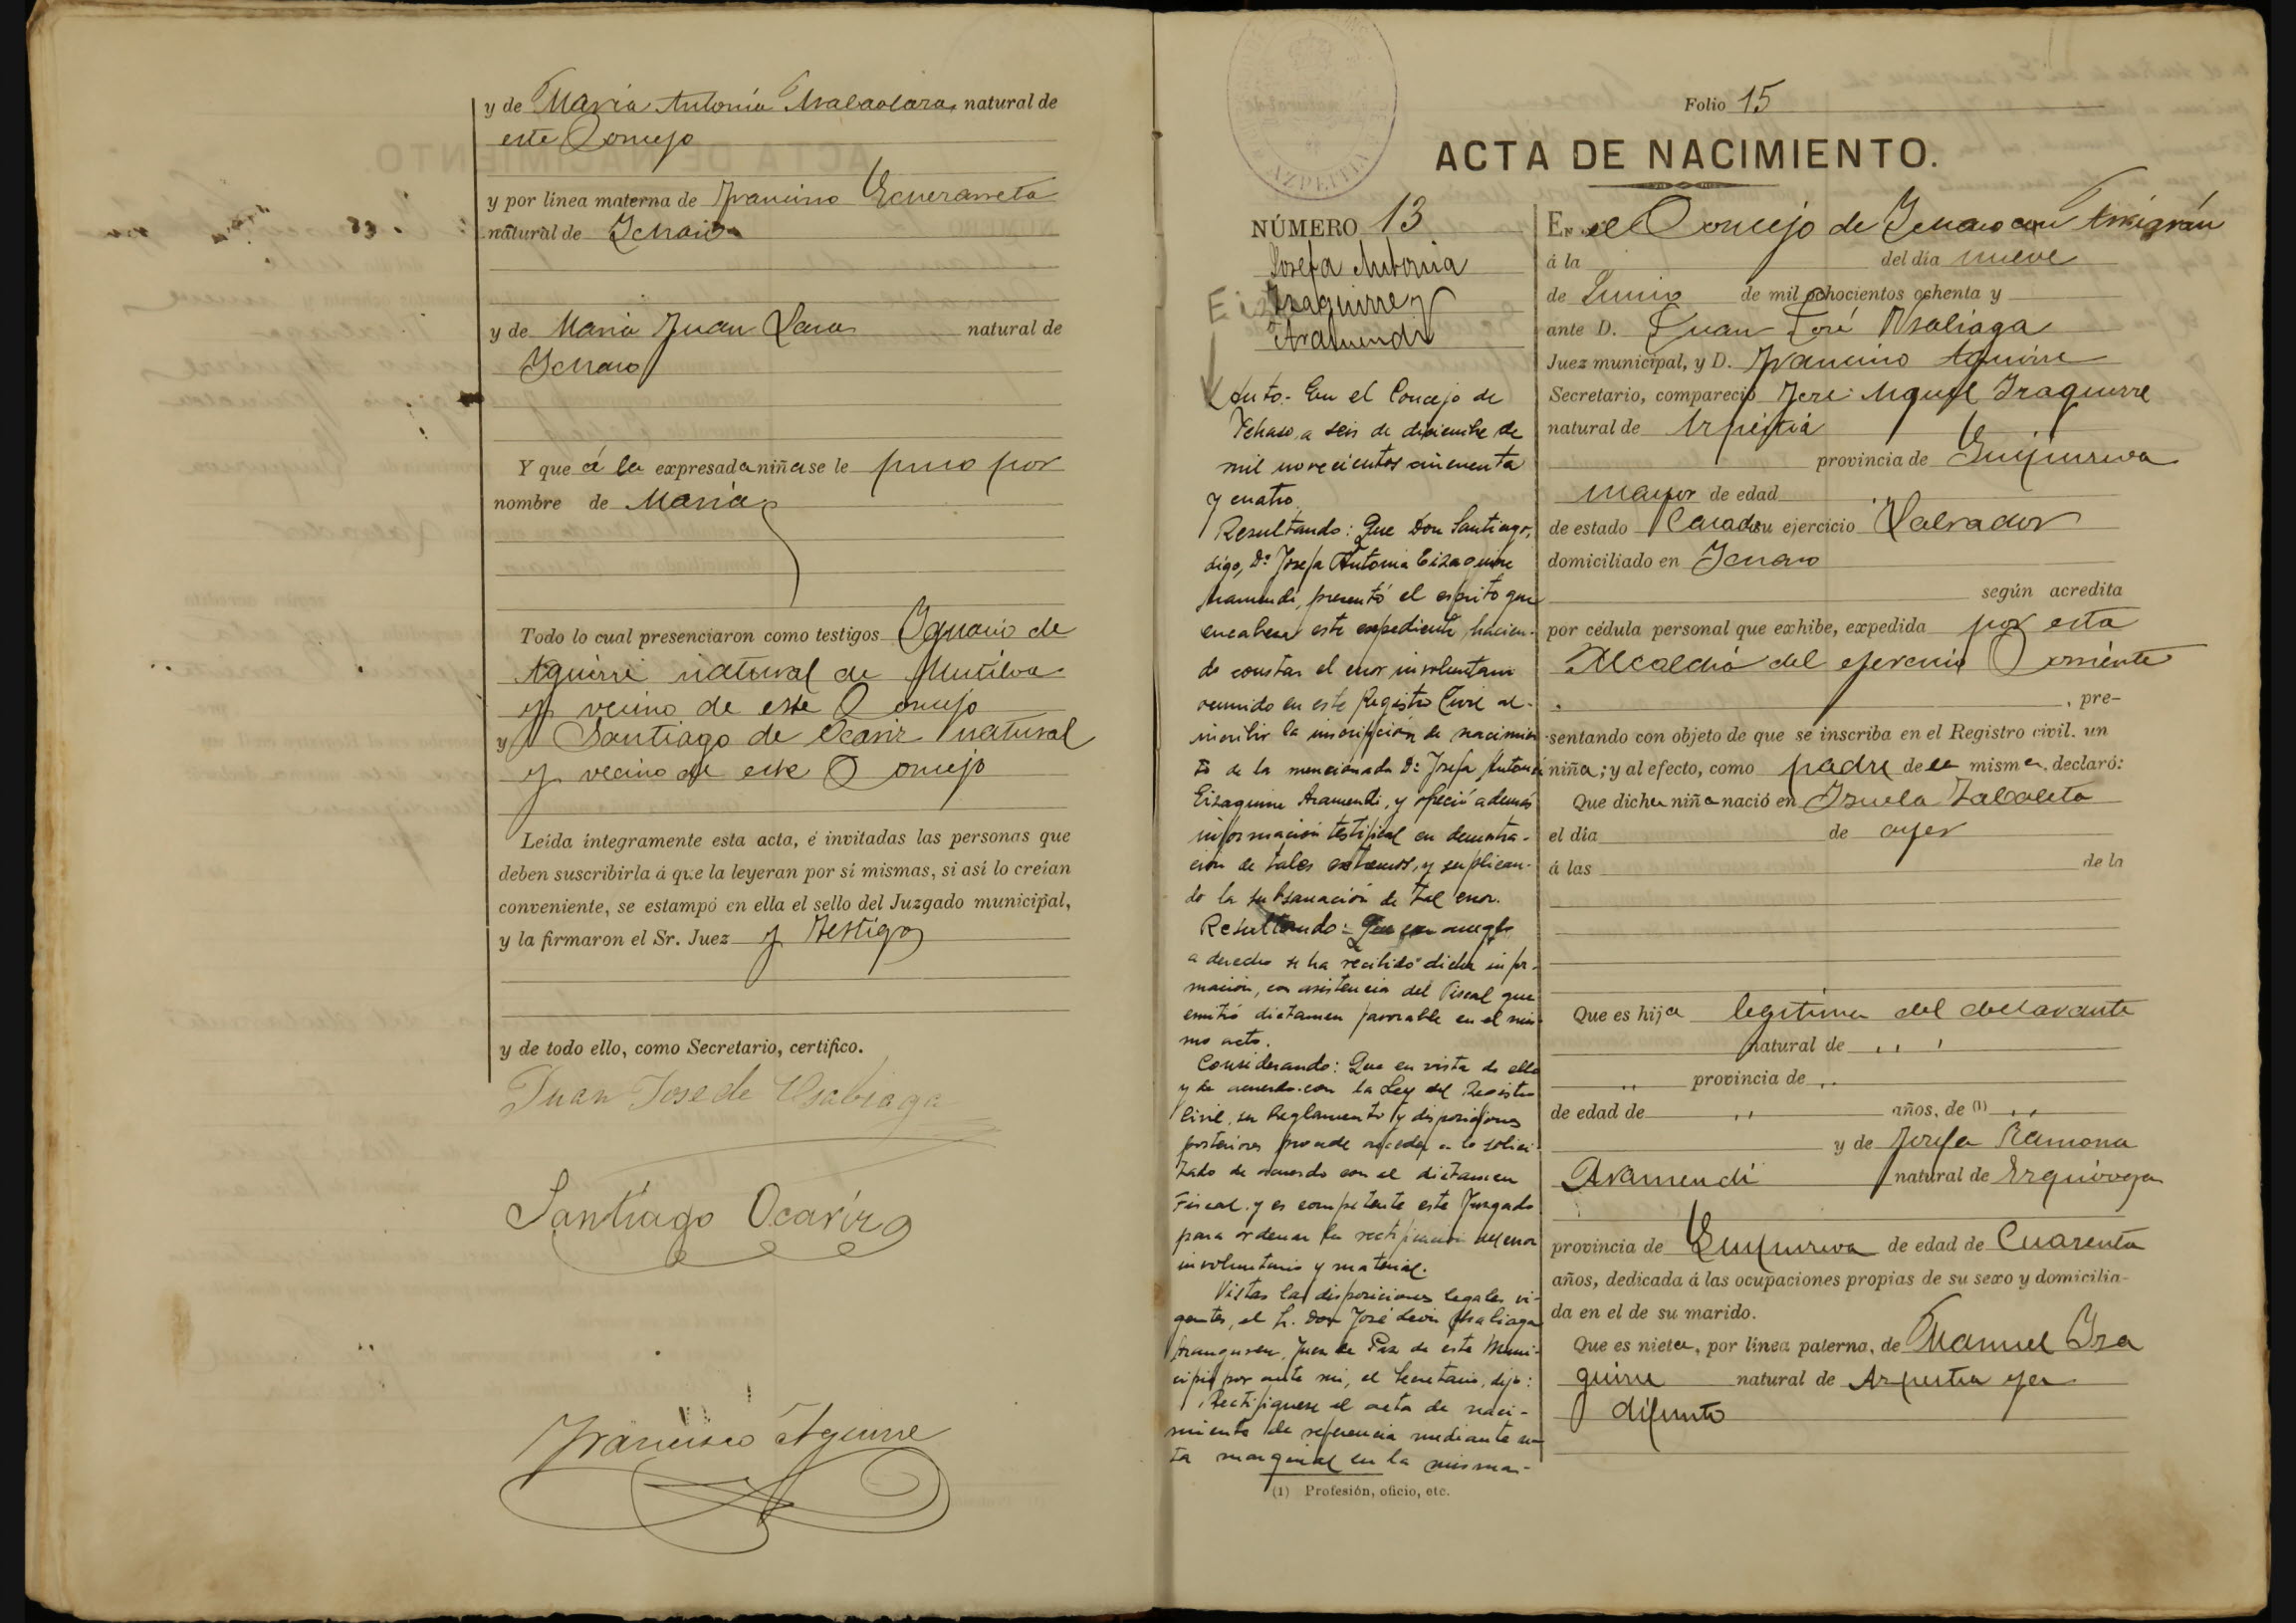 y de Maria Antonia natural de
este Concejo
y por linea materna de Francisco Echezarreta
natural de Ichaso
y de Maria Juan Lasa natural de
Ichaso
Y que á la expresada niña se le puso por
nombre de Maria
Todo lo cual presenciaron como testigos Ygnacio de
Aguirre natural de Mutiloa
y vecino de este Concejo
y Santiago de Ocariz natural
y vecino de este Concejo
Leida íntegramente esta acta, é invitadas las personas que
deben suscribirla á que la leyeran por sí mismas, si así lo creían
conveniente, se estampó en ella el sello del Juzgado municipal,
y la firmaron el Sr. Juez y Testigos
y de todo ello, como Secretario, certifico.
Juan Jose de Usabiaga
Santiago Ocariz
Francisco Aguirre
Folio 15
ACTA DE NACIMIENTO.
AZPEITIA
NÚMERO 13
Josefa Antonia
Izaguirre y
Aramendi
Auto.- En el Concejo de
Ichaso, a seis de diciembre de
mil novecientos cincuenta
y cuatro.
Resultando: Que Don Santiago,
digo, Dª Josefa Antonia Eizaguirre
Aramendi, presentó el escrito que
encabeza este expediente, hacien-
do constar el error involuntario
cometido en este Registro Civil al
inscribir la inscripción de nacimien-
to de la mencionada Dª Josefa Antonia
Eizaguirre Aramendi, y ofreció además
información testifical en demostra-
ción de tales extremos, y suplican-
do la subsanación de tal error.
Resultando: Que con arreglo
a derecho se ha recibido dicha infor-
mación, con asistencia del Fiscal que
emitió dictamen favorable en el mis-
mo acto.
Considerando: Que en vista de ello
y de acuerdo con la Ley del Registro
Civil, su Reglamento y disposiciones
posteriores procede acceder a lo solici-
tado de acuerdo con el dictamen
Fiscal y es competente este Juzgado
para ordenar la rectificación del error
involuntario y material.
Vistas las disposiciones legales vi-
gentes, el Sr. Don José León Usabiaga
Aranguren, Juez de Paz de este Muni-
cipio por ante mi, el Secretario, dijo:
Rectifíquese el acta de naci-
miento de referencia mediante no-
ta marginal en la misma-
(1) Profesión, oficio, etc.
En el Concejo de Ichaso con Arriarán
á la del día nueve
de Junio de mil ochocientos ochenta y
ante D. Juan José Usabiaga
Juez municipal, y D. Francisco Aguirre
Secretario, compareció José Miguel Izaguirre
natural de Azpeitia
provincia de Guipuzcoa
mayor de edad
de estado Casado su ejercicio Labrador
domiciliado en Ichaso
según acredita
por cédula personal que exhibe, expedida por esta
Alcaldia del ejercicio Corriente
, pre-
sentando con objeto de que se inscriba en el Registro civil. un
niña; y al efecto, como padre de la misma, declaró:
Que dicha niña nació en Zabaleta
el día de ayer
á las de la
Que es hija legitima del declarante
natural de ,, ,
,, provincia de ,,
de edad de ,, años, de (1) ,,
y de Josefa Ramona
Aramendi natural de Ezquioga
provincia de Guipuzcoa de edad de Cuarenta
años, dedicada á las ocupaciones propias de su sexo y domicilia-
da en el de su marido.
Que es nieta, por linea paterna, de Manuel Iza
guirre natural de Azpeitia ya
difunto